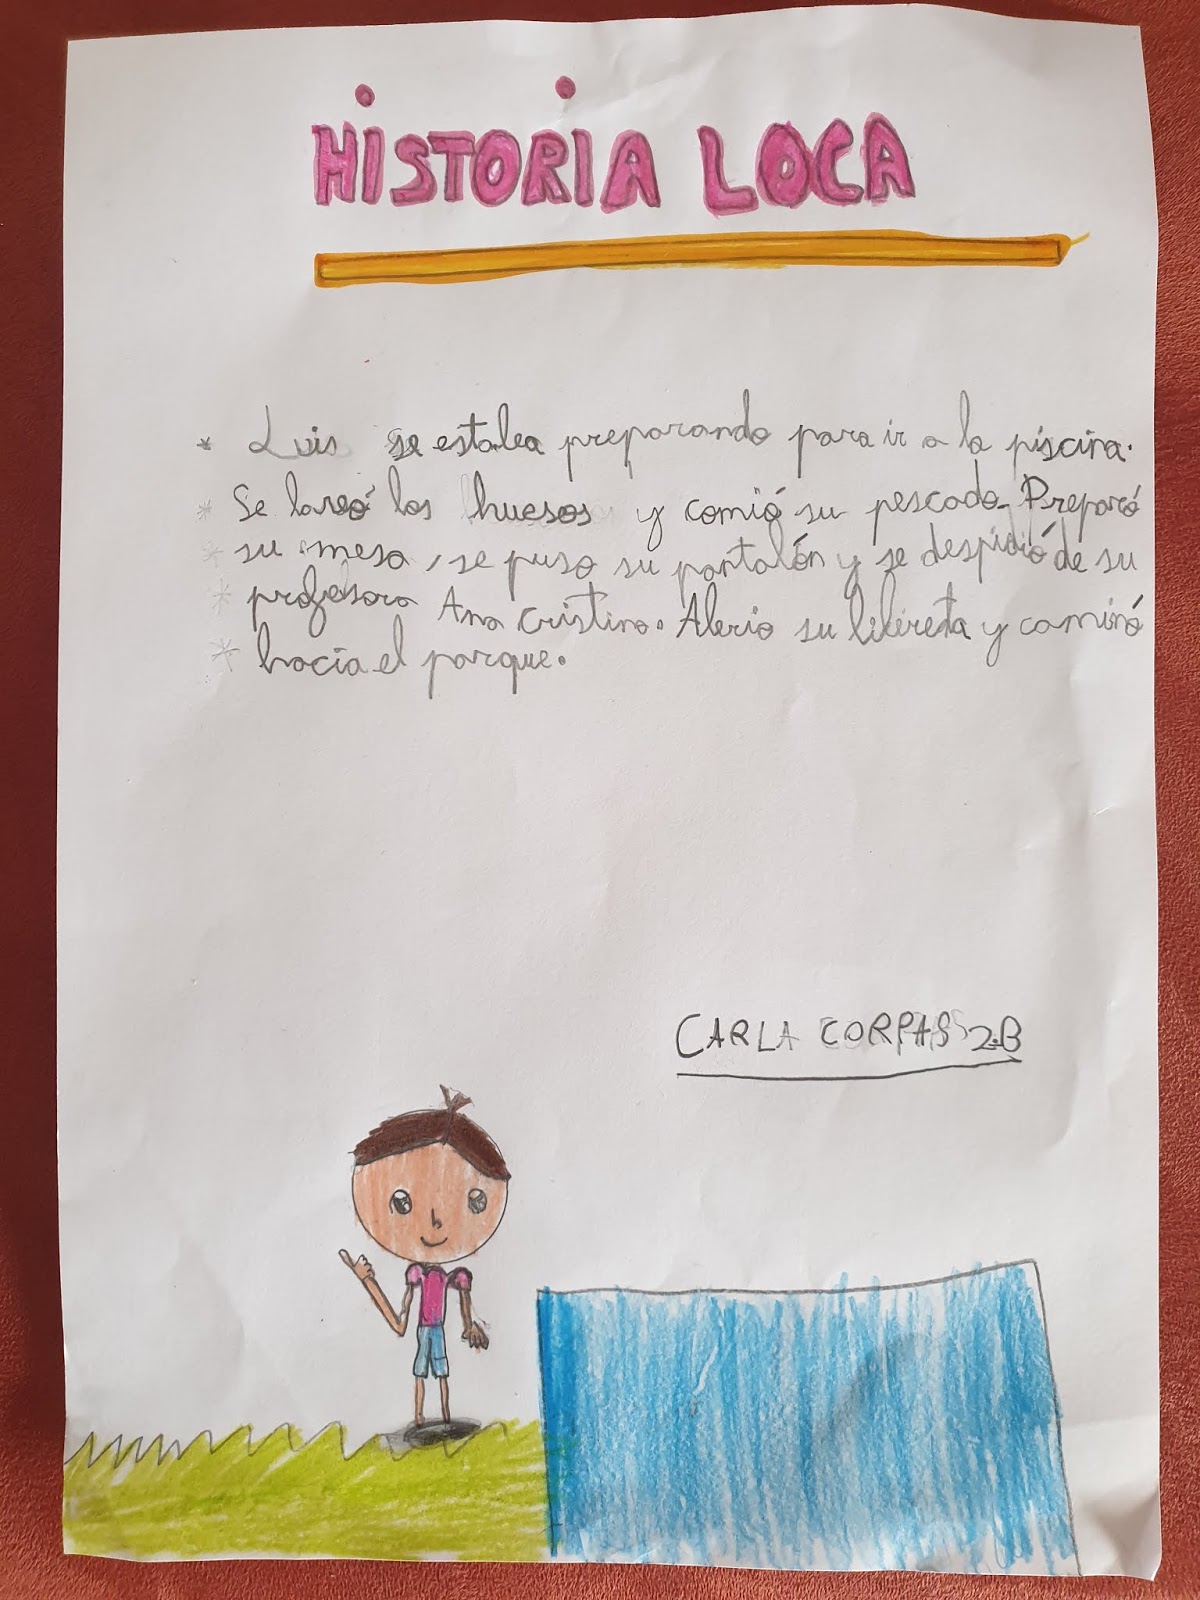 HISTORIA LOCA
* Luis se estaba preparando para ir a la piscina.
* Se lavó los huesos y comió su pescado. Preparó
* su mesa, se puso su pantalón y se despidió de su
* profesora Ana Cristina. Abrio su libreta y caminó
* hacia el parque.
CARLA CORPAS 2.B